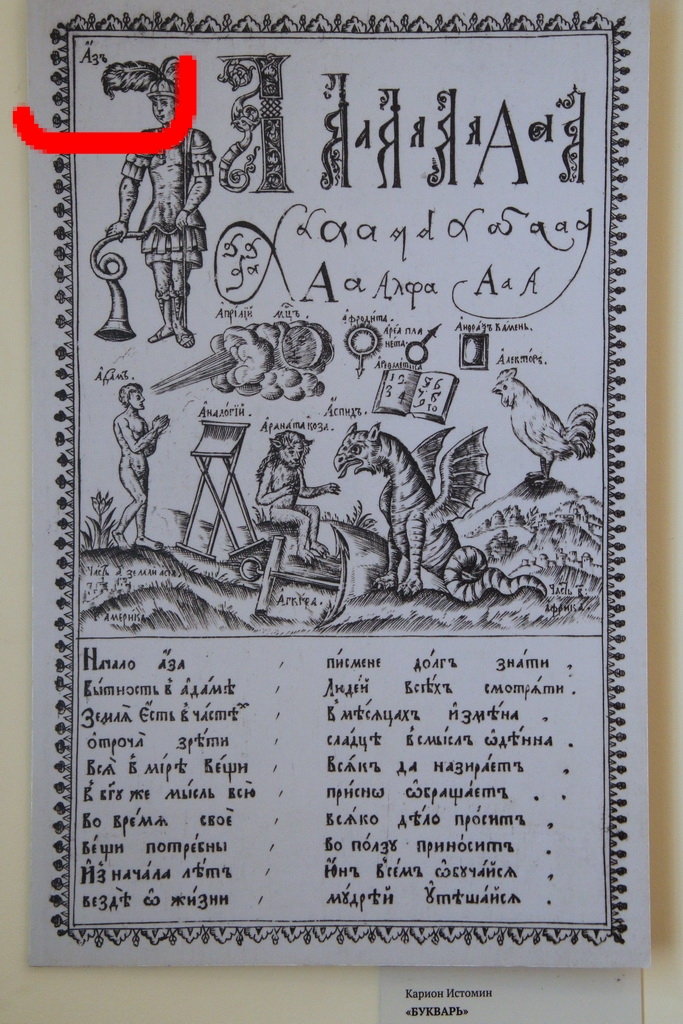 А҆́зъ
А
А А А А А А а А
А а Алфа А а А
А҆прі́лїй мц҃ъ А҆фроди́та. А҆ре́а плане́та. А҆нѳра́ѯъ ка́мень.
А҆риѳме́тїка А҆ле́кторъ.
А҆да́мъ. А҆нало́гїй А҆спи́хъ.
1 2 3 5 6 7 8 9 10
А҆́гкѵра.
Ча́сть а҆ земли
а҆ме́рика
Ча́сть в҃ а҆́фрика.
Нача́ло а҆́за , писмене до́лгъ зна́ти ,
Бы́тность в̾ а҆да́мѣ Люде́й всѣ́хъ смотря́ти .
Земля̀ є҆́сть в̾ ча́стѣ , В̾ мѣ́сяцахъ и҆змѣ́на ,
ѻтроча̀ зрѣ́ти сла́дцѣ в̾смы́слъ ѡ҆дѣ́нна .
Вся̀ в̾ мі́рѣ ве́щи , Вся́къ да назира́етъ ,
В̾ бг҃у же мы́сль всю̀ , при́снѡ ѡ҆браща́етъ .
Во вре́мя своѐ , вся́ко дѣ́ло про́ситъ ,
ве́щи потре́бны во по́лзу прино́ситъ .
И҆з̾ нача́ла лѣ́тъ , Ю҆́нъ все́мъ ѡ҆буча́йся ,
вездѣ̀ ѡ҆ жи́зни , мꙋ́дрѣй ᲂу҆тѣша́йся .
Карион Истомин
«БУКВАРЬ»